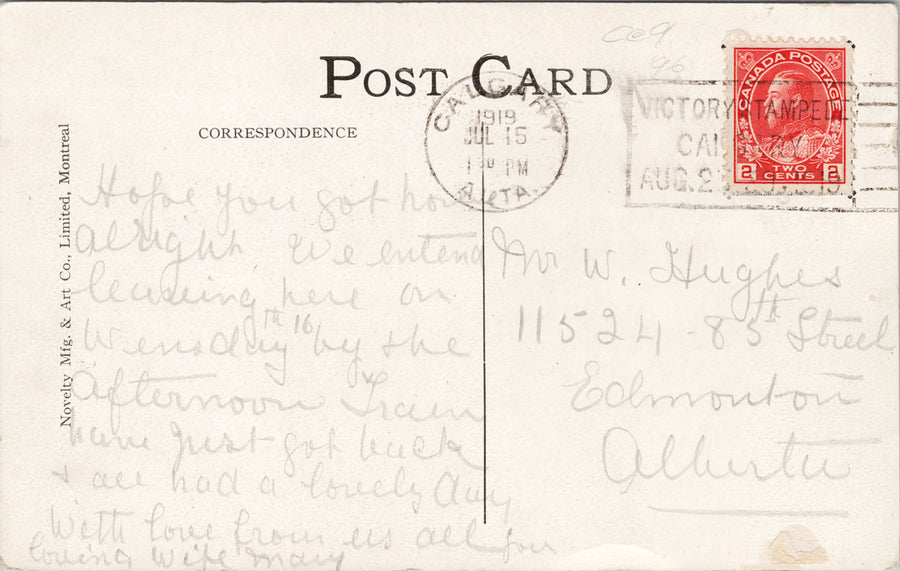 POST CARD
CORRESPONDENCE
Novelty Mfg. & Art Co., Limited, Montreal
CALGARY
1919
JUL 15
PM
ALTA.
VICTORY STAMPEDE
CALGARY
AUG. 2
CANADA POSTAGE
2 TWO CENTS 2
Hope you got home
Alright, We entend
leaving here on
Wensday 16th by the
Afternoon Train
have Just got back
& all had a lovely day
With love from us all your
loving Wife Mary
Mr W. Hughes
11524-85th Street
Edmonton
Alberta